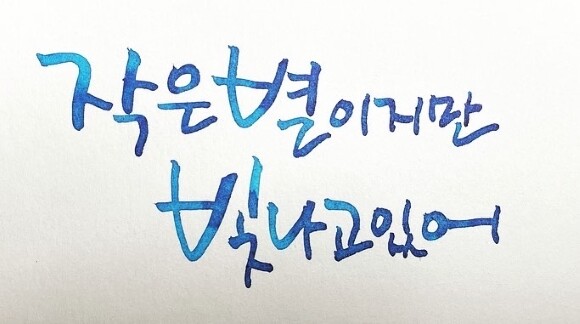 작은별이지만
빛나고있어